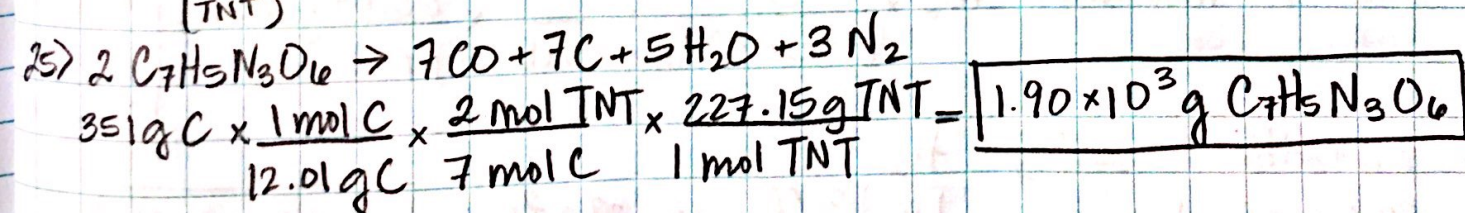 (TNT)
25) 2 C7H5N3O6 → 7CO + 7C + 5H2O + 3N2
351g C × 1 mol C / 12.01g C × 2 mol TNT / 7 mol C × 227.15g TNT / 1 mol TNT = 1.90×10³ g C7H5N3O6